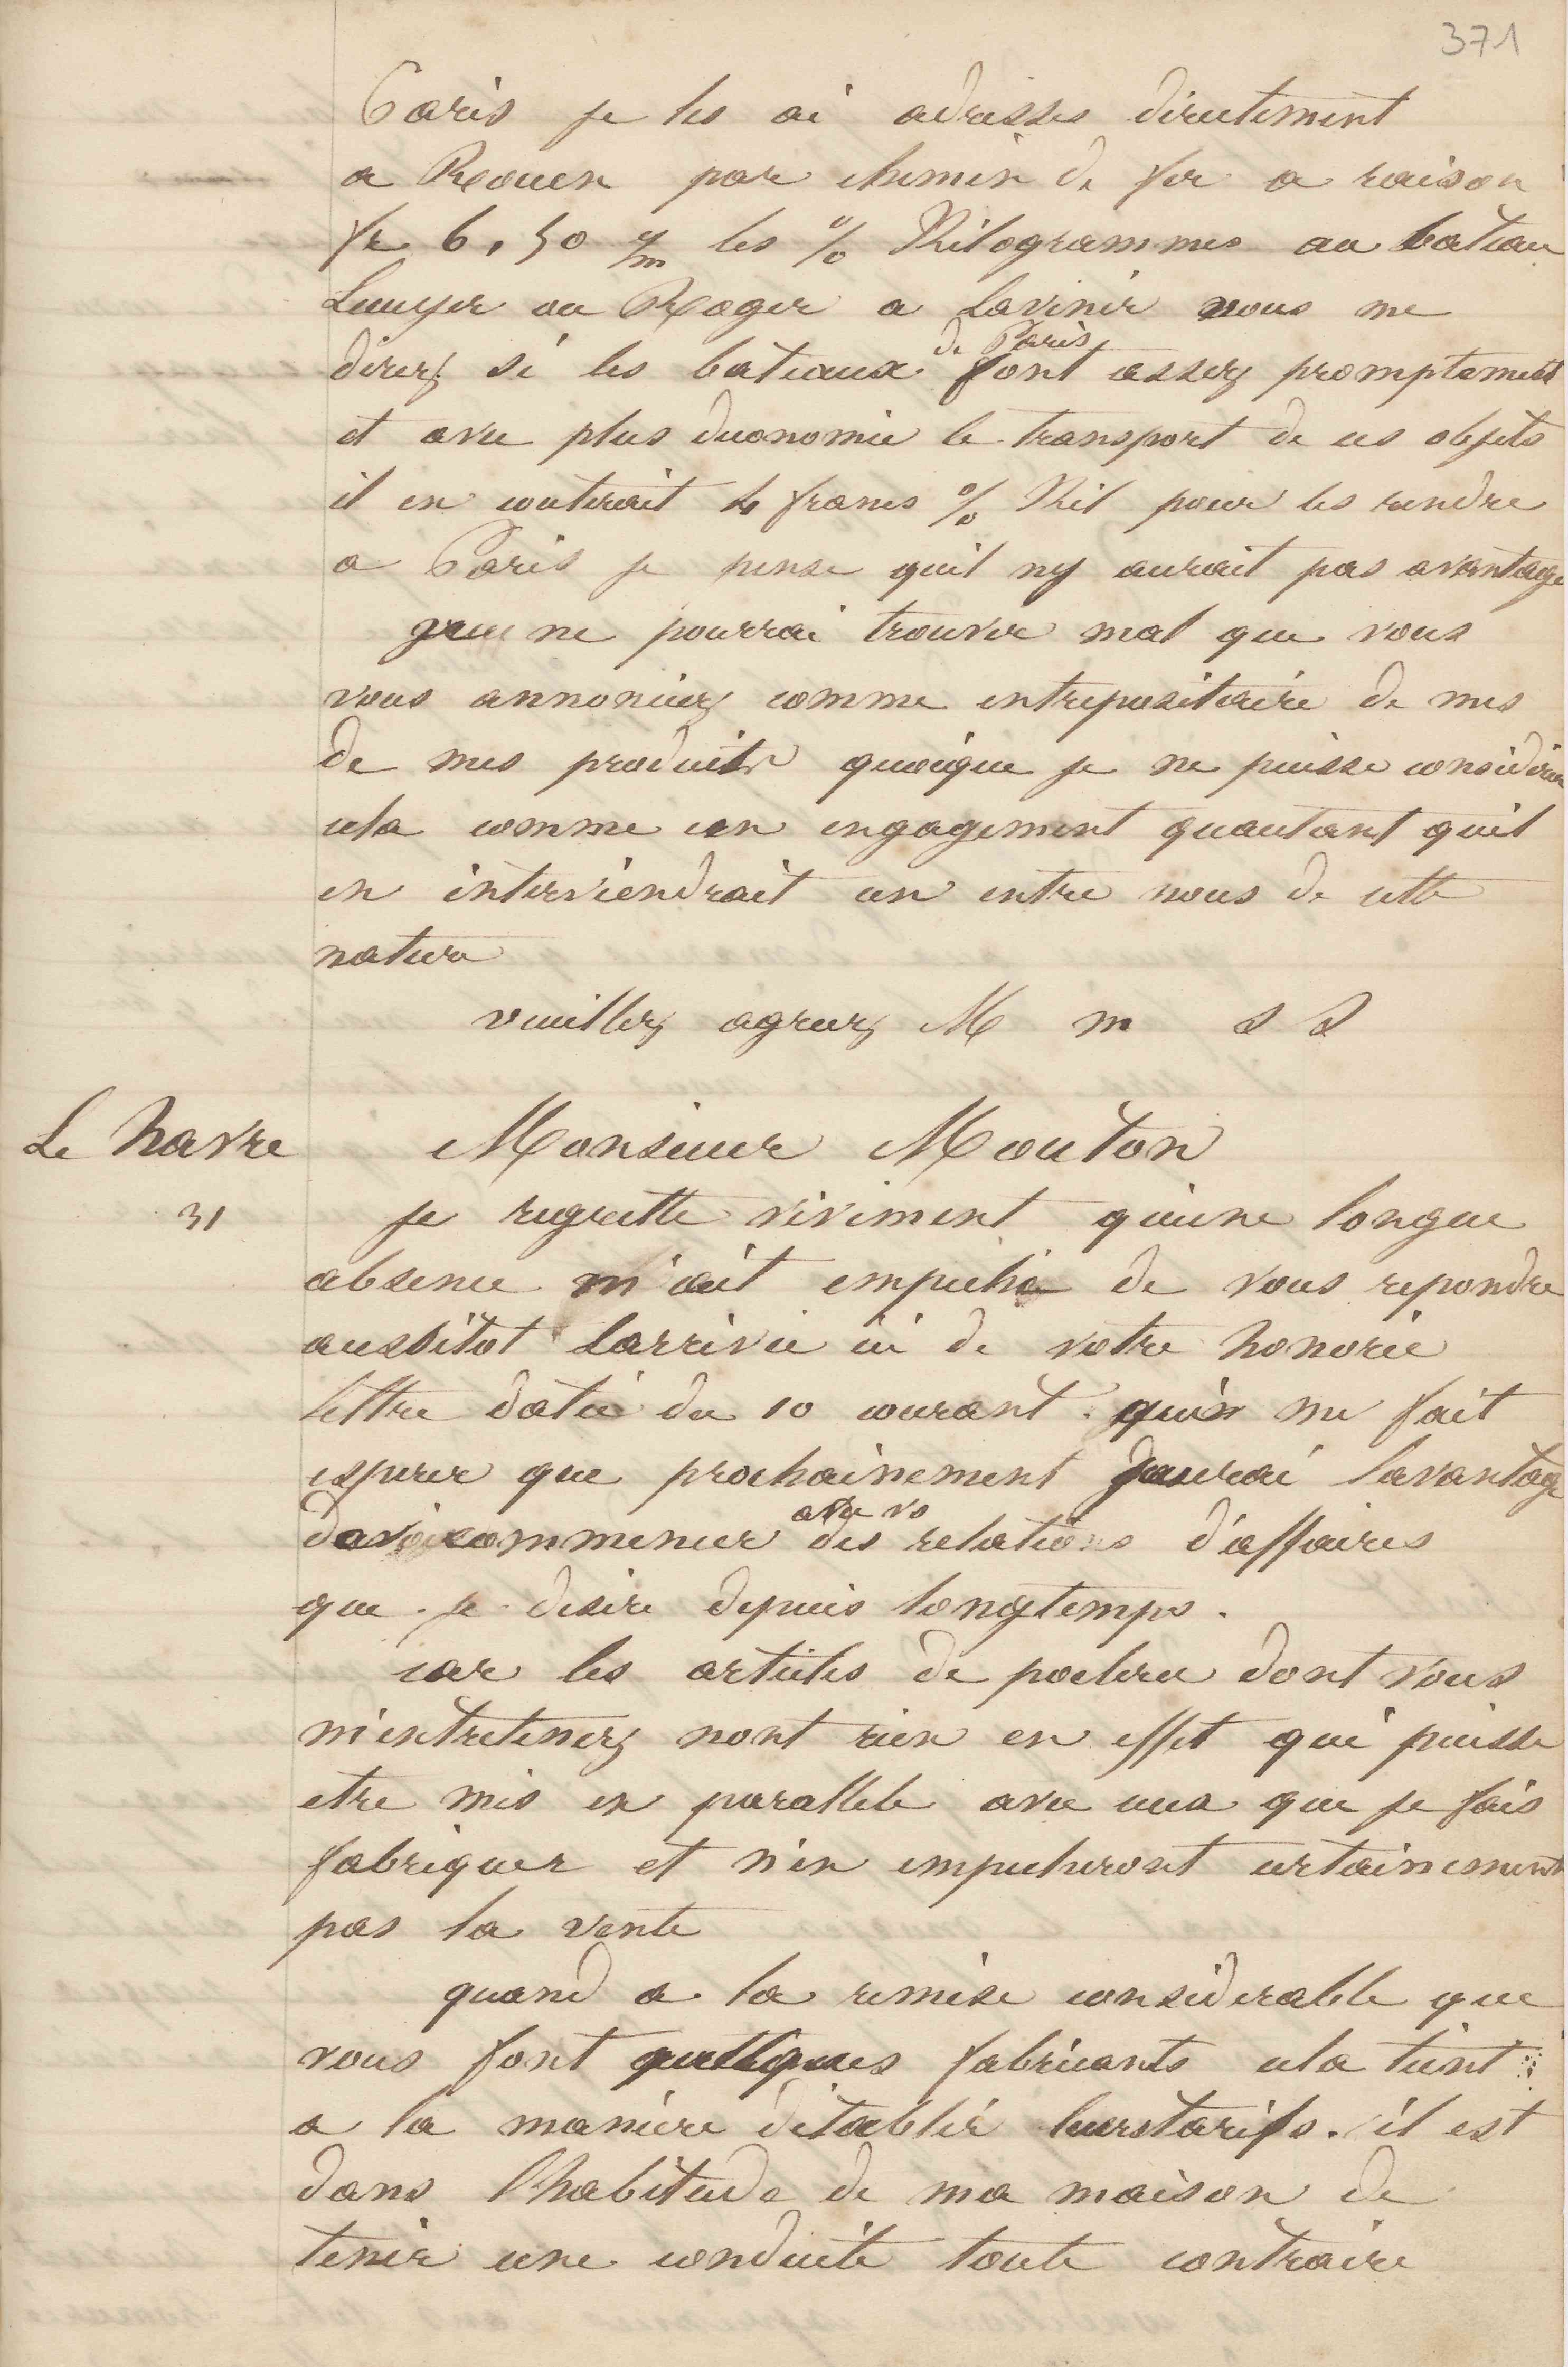 371
Paris je les ai adresses directement
a Rouen par chemin de fer a raison
fr 6,50 les % Kilogrammes au bateau
ou Roger a lavenir vous me
direz si les bateaux de Paris font assez promptement
et avec plus deconomie le transport de ces objets
il en couterait 4 francs % Kil pour les rendre
a Paris je pense quil ny aurait pas avantage
ne pourrai trouver mal que vous
vous annonciez comme entrepositaire de mes
de mes produits quoique je ne puisse considerer
cela comme un engagement quautant quil
en interviendrait un entre nous de cette
nature
veuillez agreez M m s s
Le havre
Monsieur Mouton
31
je regrette vivement quune longue
absence m'ait empeché de vous repondre
aussitot larrivée ici de votre honorée
lettre datée du 10 courant. qui me fait
esperer que prochainement jaurai lavantage
commencer avec vs des relations d'affaires
que je desire depuis longtemps.
car les articles de poelerie dont vous
m'entretenez nont rien en effet qui puisse
etre mis en parallele avec ceux que je fais
fabriquer et n'en empecheront certainement
pas la vente
quand a la remise considerable que
vous font quelques fabricants cela tient
a la maniere d'établir leurs tarifs. il est
dans l'habitude de ma maison de
tenir une conduite toute contraire